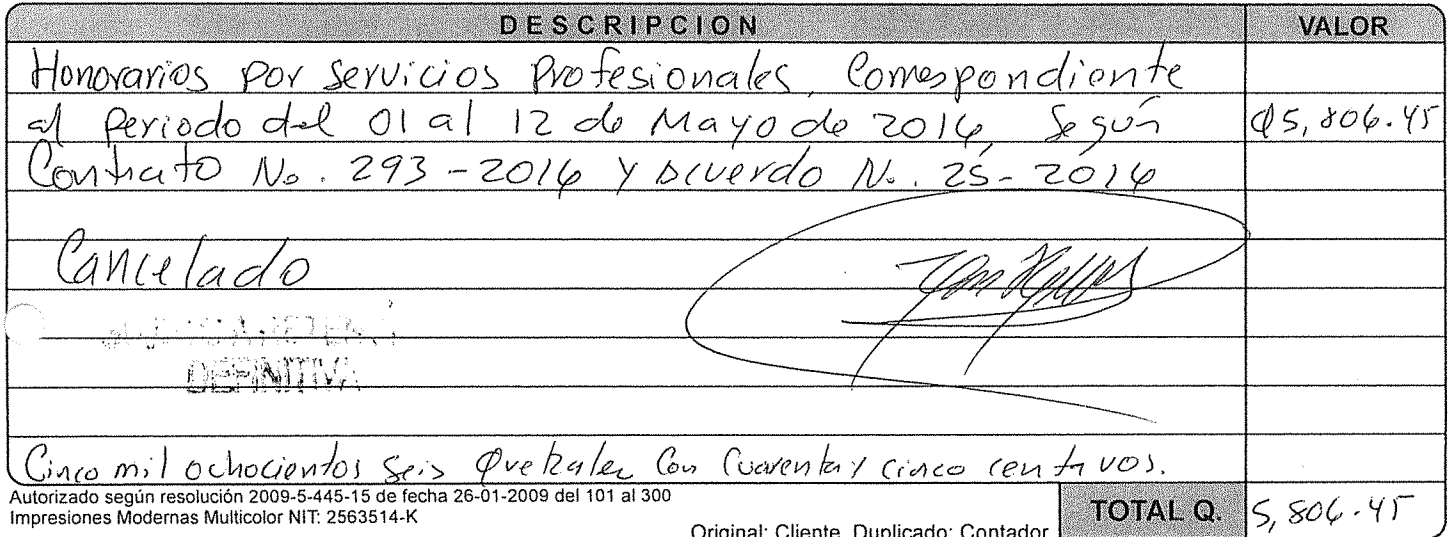 DESCRIPCION VALOR
Honorarios por Servicios Profesionales, Correspondiente
al periodo del 01 al 12 de Mayo de 2016, Según Q5,806.45
Contrato No. 293-2016 y Acuerdo No. 25-2016
Cancelado
DEFINITIVA
Cinco mil ochocientos Seis Quetzales Con Cuarenta y cinco centavos.
Autorizado según resolución 2009-5-445-15 de fecha 26-01-2009 del 101 al 300
Impresiones Modernas Multicolor NIT: 2563514-K
Original: Cliente Duplicado: Contador
TOTAL Q. 5,806.45